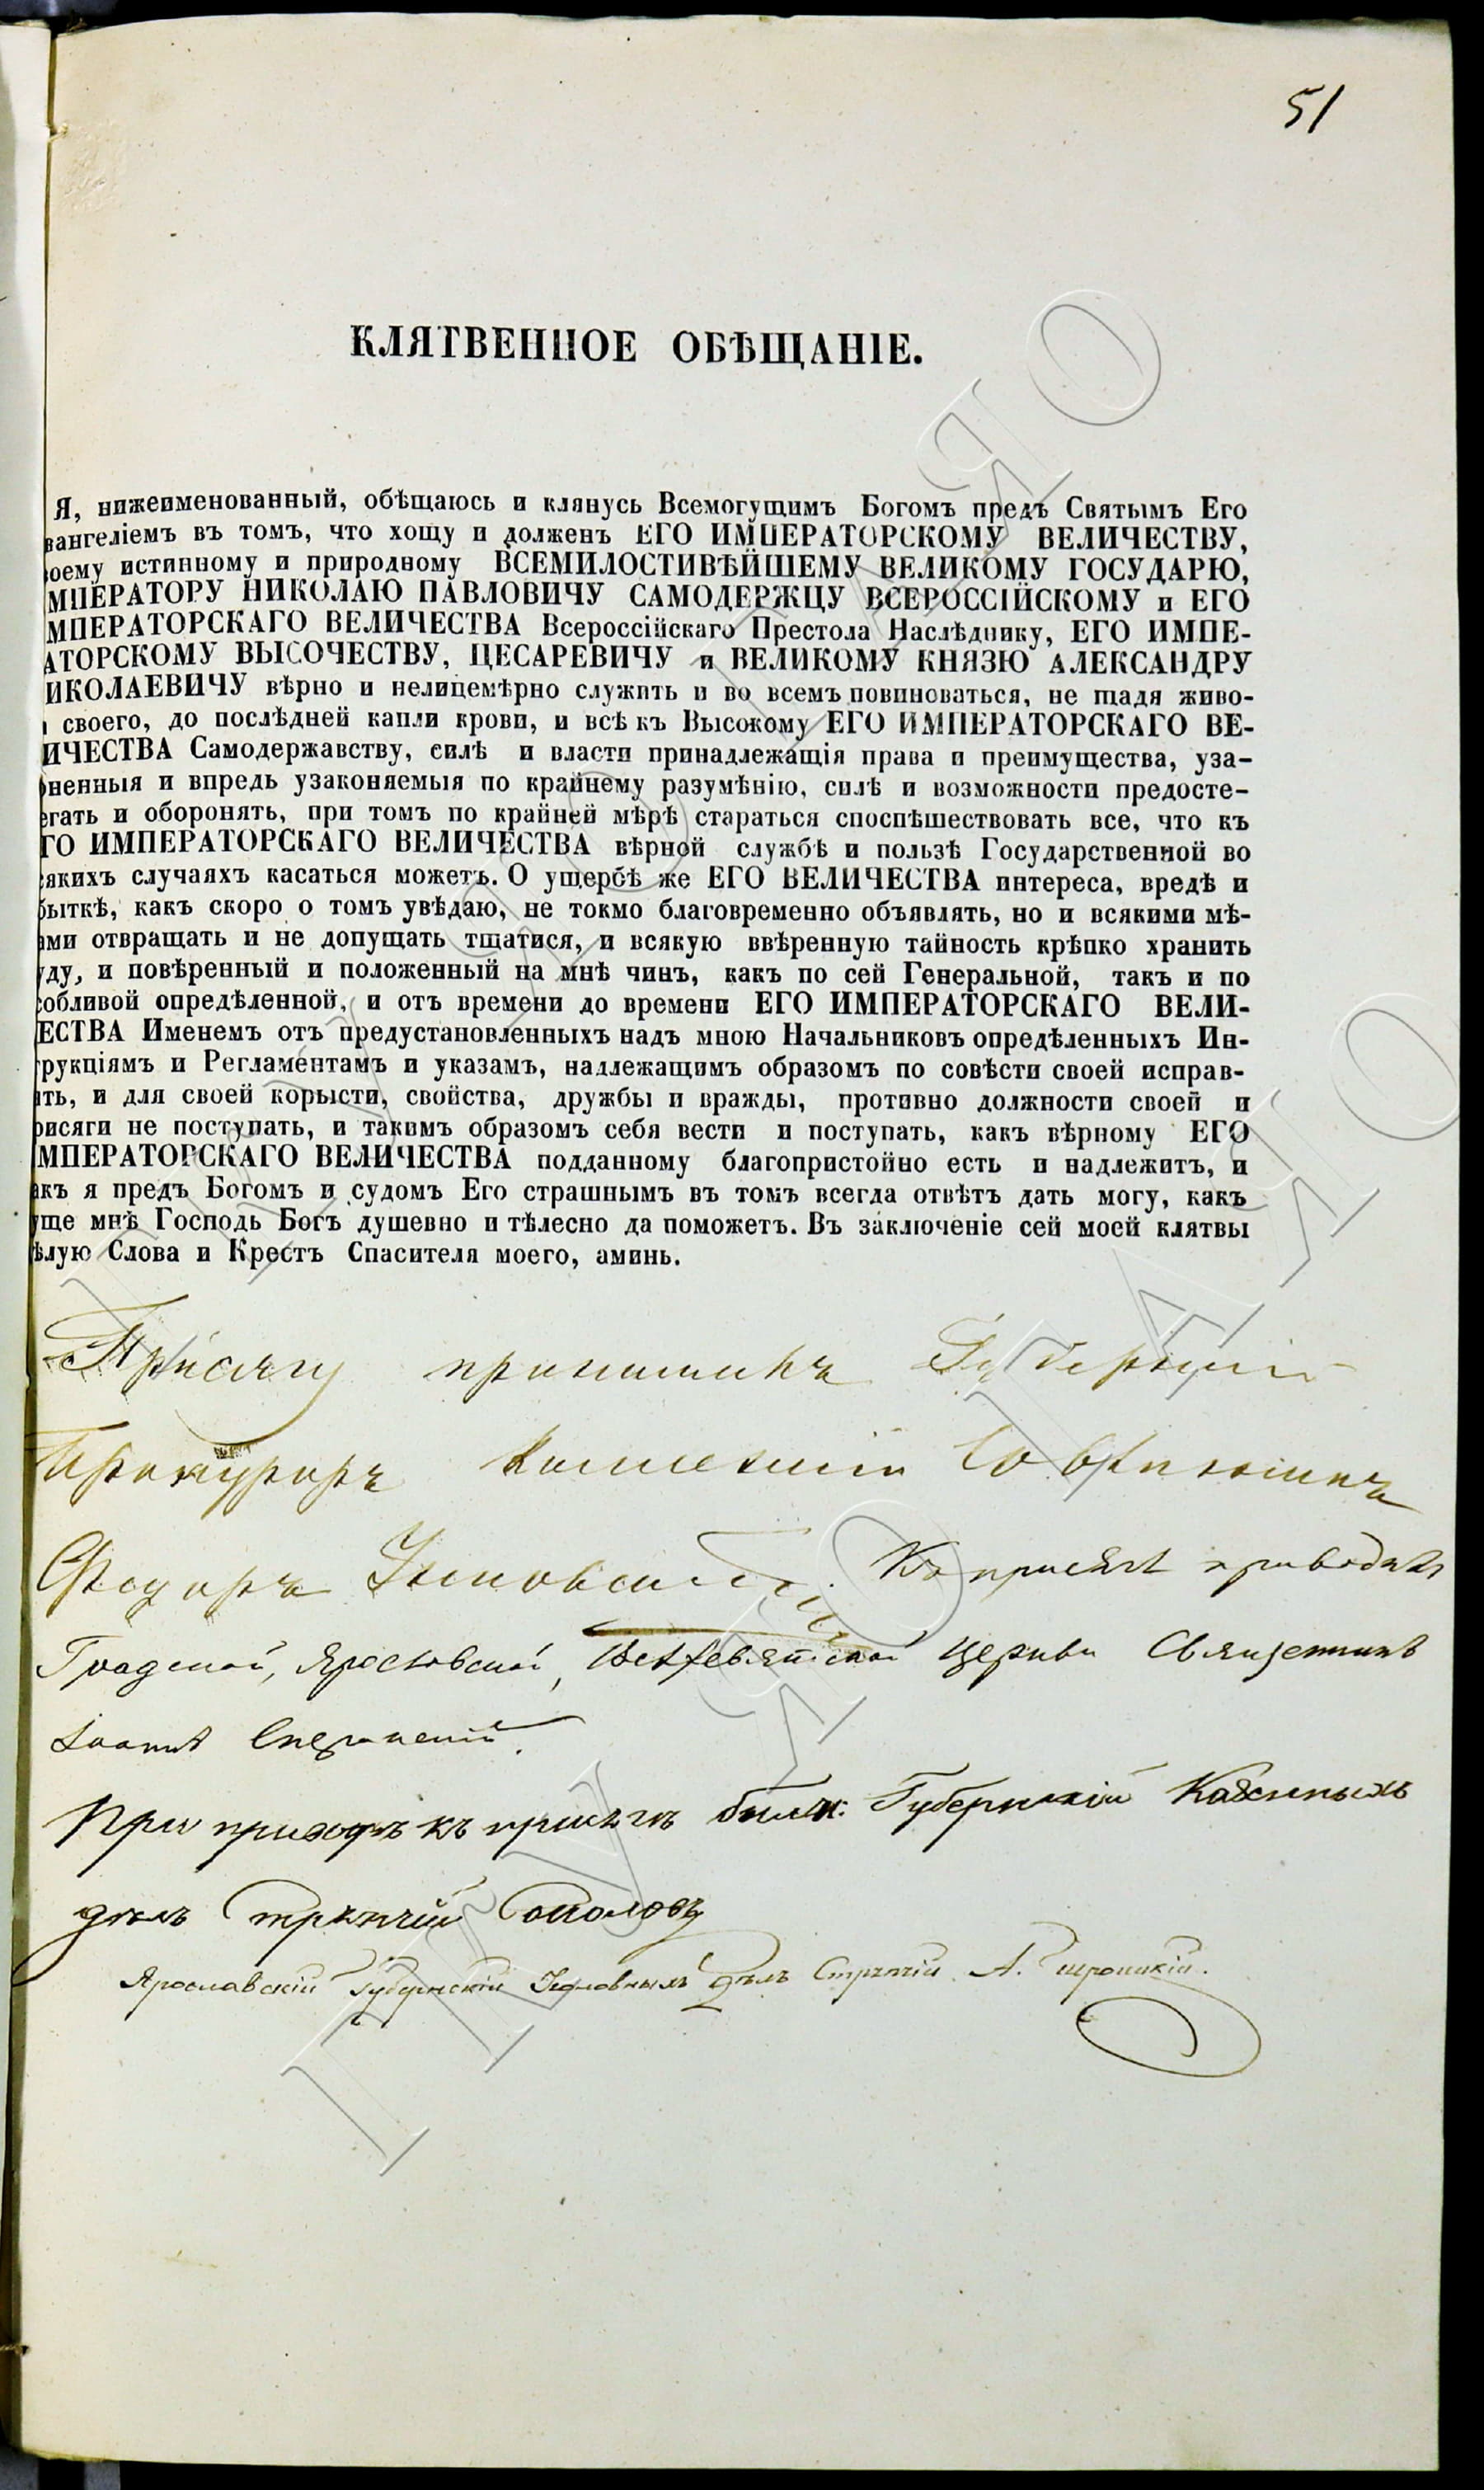 51
КЛЯТВЕННОЕ ОБѢЩАНІЕ.
Я, нижеименованный, обѣщаюсь и клянусь Всемогущимъ Богомъ предъ Святымъ Его
вангеліемъ въ томъ, что хощу и долженъ ЕГО ИМПЕРАТОРСКОМУ ВЕЛИЧЕСТВУ,
оему истинному и природному ВСЕМИЛОСТИВѢЙШЕМУ ВЕЛИКОМУ ГОСУДАРЮ,
МПЕРАТОРУ НИКОЛАЮ ПАВЛОВИЧУ САМОДЕРЖЦУ ВСЕРОССІЙСКОМУ и ЕГО
МПЕРАТОРСКАГО ВЕЛИЧЕСТВА Всероссійскаго Престола Наслѣднику, ЕГО ИМПЕ-
АТОРСКОМУ ВЫСОЧЕСТВУ, ЦЕСАРЕВИЧУ и ВЕЛИКОМУ КНЯЗЮ АЛЕКСАНДРУ
ИКОЛАЕВИЧУ вѣрно и нелицемѣрно служить и во всемъ повиноваться, не щадя живо-
своего, до послѣдней капли крови, и всѣ къ Высокому ЕГО ИМПЕРАТОРСКАГО ВЕ-
ИЧЕСТВА Самодержавству, силѣ и власти принадлежащія права и преимущества, уза-
ненныя и впредь узаконяемыя по крайнему разумѣнію, силѣ и возможности предосте-
егать и оборонять, при томъ по крайней мѣрѣ стараться споспѣшествовать все, что къ
ГО ИМПЕРАТОРСКАГО ВЕЛИЧЕСТВА вѣрной службѣ и пользѣ Государственной во
сякихъ случаяхъ касаться можетъ. О ущербѣ же ЕГО ВЕЛИЧЕСТВА интереса, вредѣ и
быткѣ, какъ скоро о томъ увѣдаю, не токмо благовременно объявлять, но и всякими мѣ-
ами отвращать и не допущать тщатися, и всякую ввѣренную тайность крѣпко хранить
уду, и повѣренный и положенный на мнѣ чинъ, какъ по сей Генеральной, такъ и по
собливой опредѣленной, и отъ времени до времени ЕГО ИМПЕРАТОРСКАГО ВЕЛИ-
ЕСТВА Именемъ отъ предустановленныхъ надъ мною Начальниковъ опредѣленныхъ Ин-
трукціямъ и Регламентамъ и указамъ, надлежащимъ образомъ по совѣсти своей исправ-
ять, и для своей корысти, свойства, дружбы и вражды, противно должности своей и
рисяги не поступать, и такимъ образомъ себя вести и поступать, какъ вѣрному ЕГО
МПЕРАТОРСКАГО ВЕЛИЧЕСТВА подданному благопристойно есть и надлежитъ, и
акъ я предъ Богомъ и судомъ Его страшнымъ въ томъ всегда отвѣтъ дать могу, какъ
уще мнѣ Господь Богъ душевно и тѣлесно да поможетъ. Въ заключеніе сей моей клятвы
ѣлую Слова и Крестъ Спасителя моего, аминь.
Присягу принималъ Губернскій
Прокуроръ Коллежскій Совѣтникъ
Федоръ Къ присягѣ приводилъ
Градской, Ярославской, Церкви Священникъ
Іоаннъ
При приводѣ къ присягѣ были: Губернскій Казенныхъ
дѣлъ стряпчій Соколовъ
Ярославскій Губернскій Уголовныхъ дѣлъ Стряпчій А.